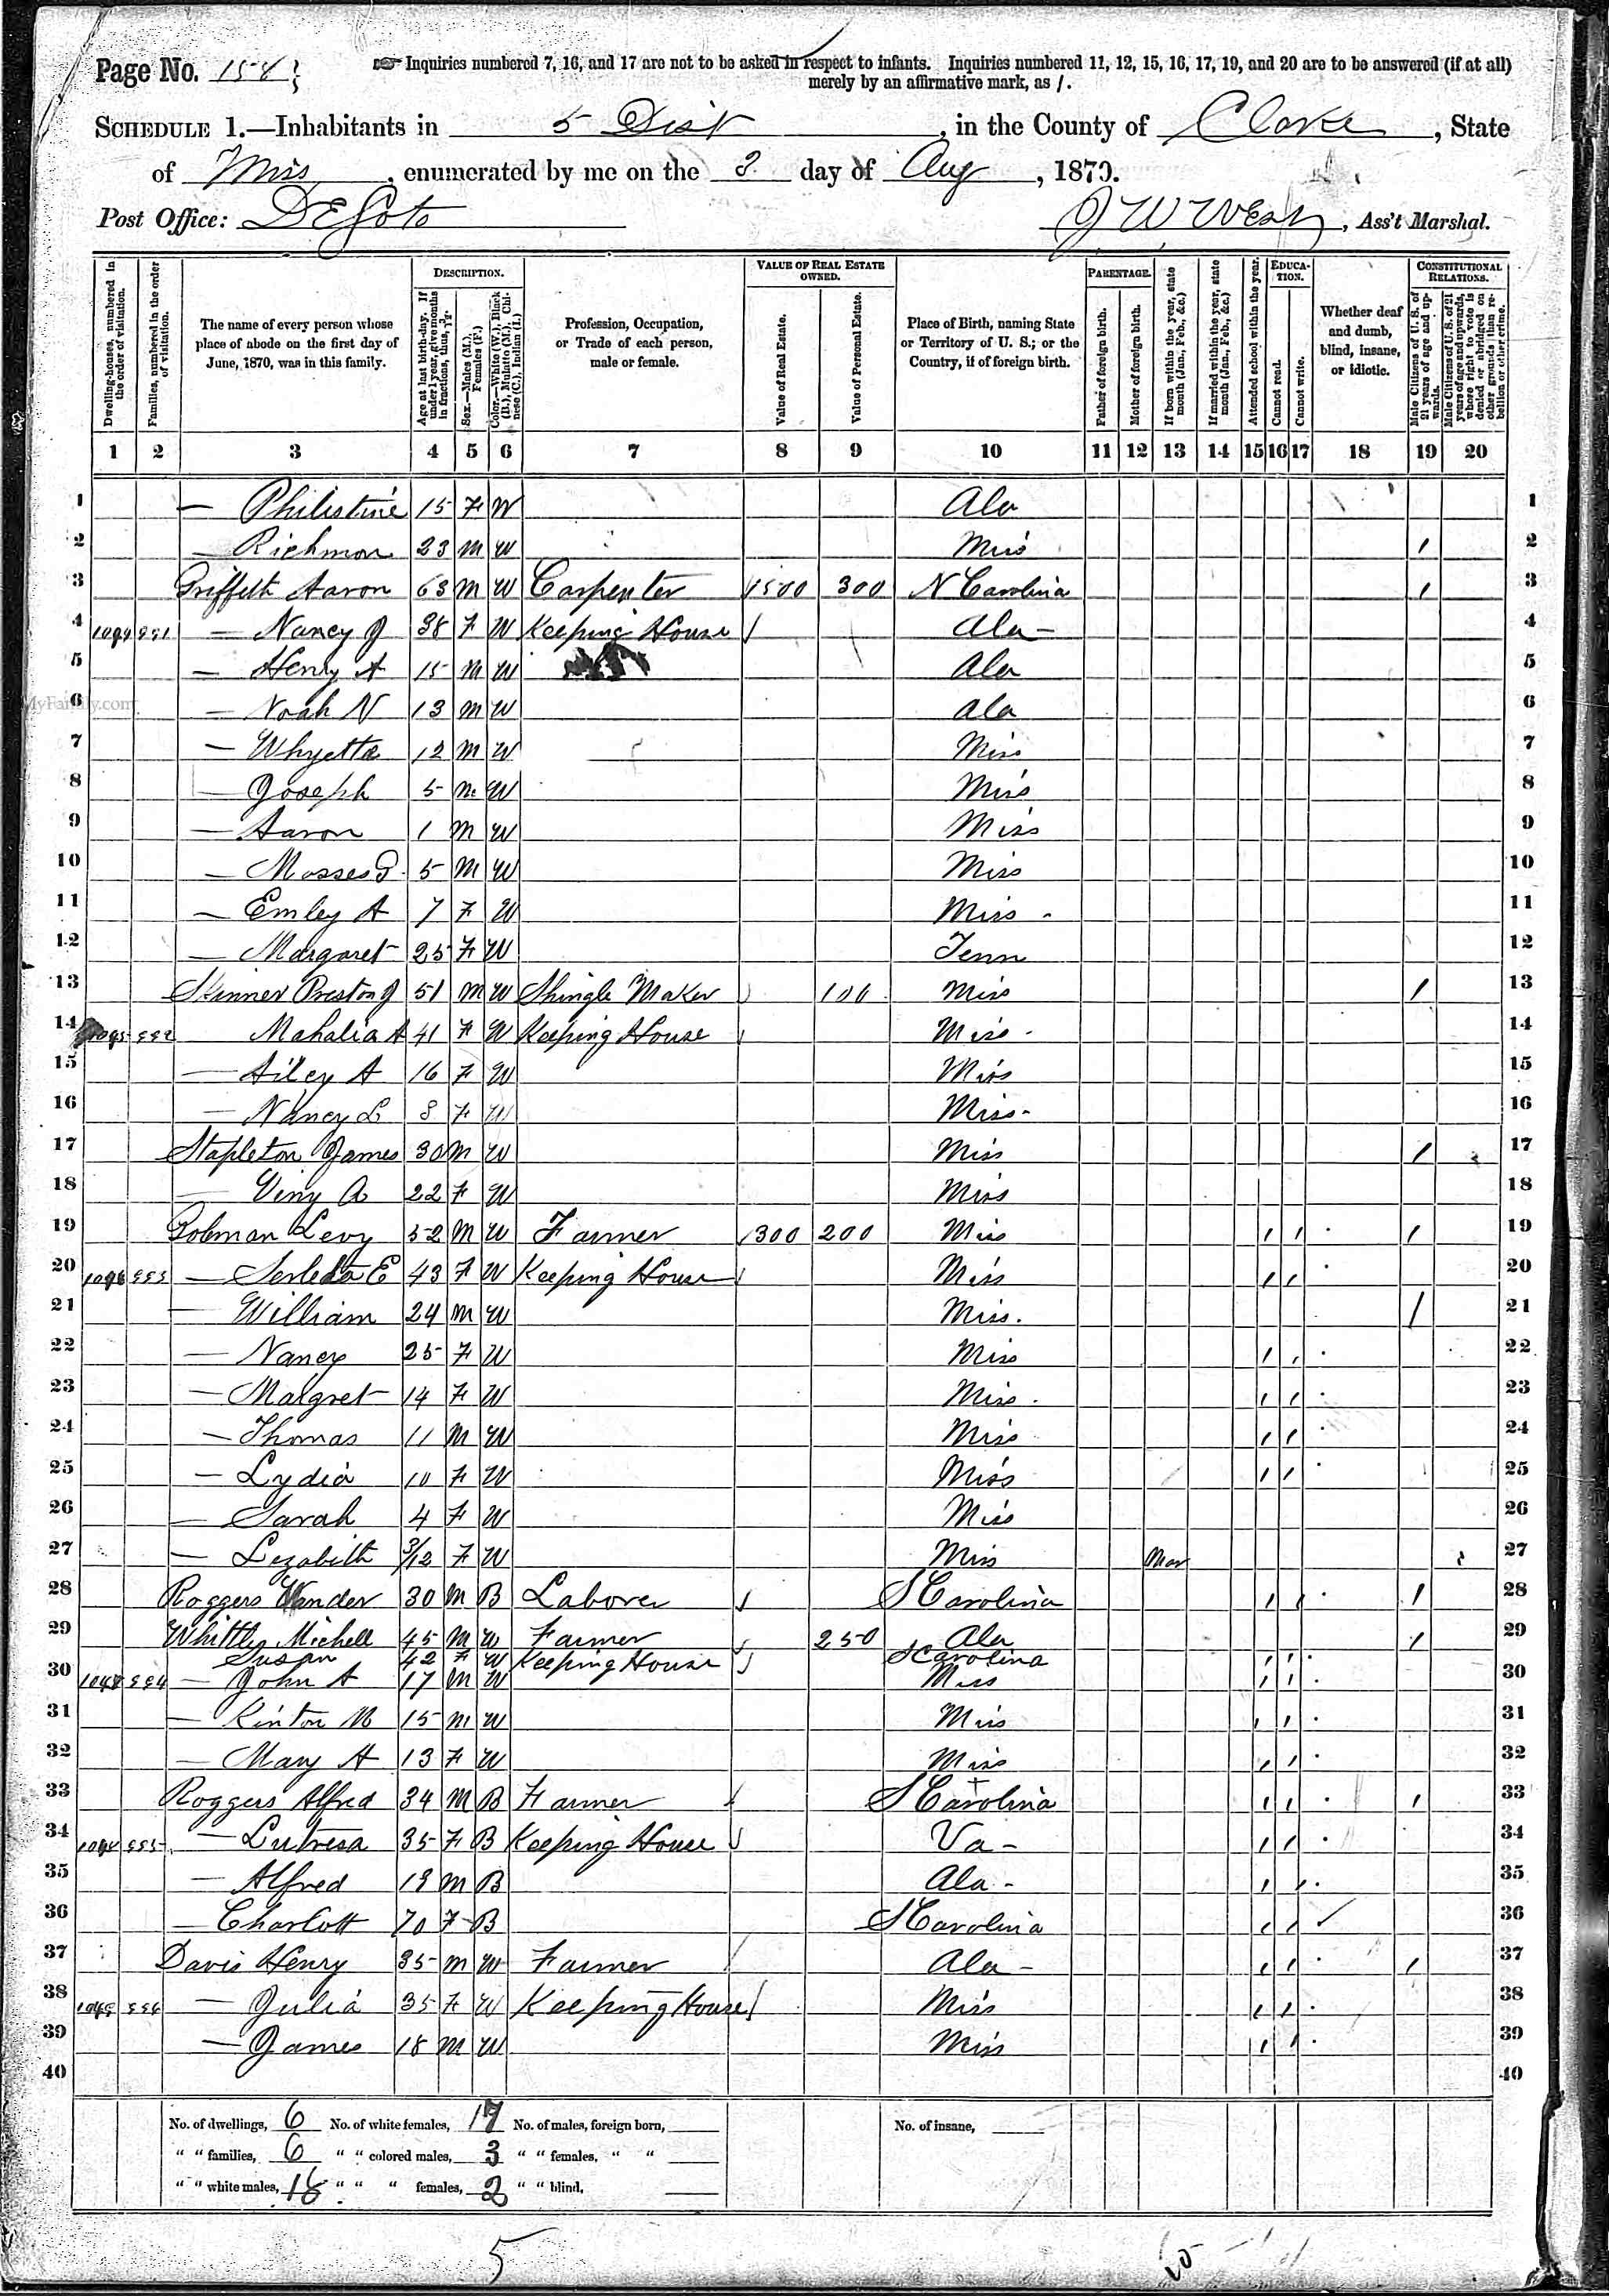 Page No. 158
☞ Inquiries numbered 7, 16, and 17 are not to be asked in respect to infants. Inquiries numbered 11, 12, 15, 16, 17, 19, and 20 are to be answered (if at all)
merely by an affirmative mark, as /.
SCHEDULE 1.—Inhabitants in 5 Dist, in the County of Clarke, State
of Miss, enumerated by me on the day of Aug, 1870.
Post Office: DeSoto J W West, Ass't Marshal.
Dwelling-houses, numbered in the order of visitation.
Families, numbered in the order of visitation.
The name of every person whose place of abode on the first day of June, 1870, was in this family.
DESCRIPTION.
Age at last birth-day. If under 1 year, give months in fractions, thus, 3/12.
Sex.—Males (M.), Females (F.)
Color.—White (W.), Black (B.), Mulatto (M.), Chinese (C.), Indian (I.)
Profession, Occupation, or Trade of each person, male or female.
VALUE OF REAL ESTATE OWNED.
Value of Real Estate.
Value of Personal Estate.
Place of Birth, naming State or Territory of U. S.; or the Country, if of foreign birth.
PARENTAGE.
Father of foreign birth.
Mother of foreign birth.
If born within the year, state month (Jan., Feb., &c.)
If married within the year, state month (Jan., Feb., &c.)
Attended school within the year.
EDUCATION.
Cannot read.
Cannot write.
Whether deaf and dumb, blind, insane, or idiotic.
CONSTITUTIONAL RELATIONS.
Male Citizens of U. S. of 21 years of age and upwards.
Male Citizens of U. S. of 21 years of age and upwards, whose right to vote is denied or abridged on other grounds than rebellion or other crime.
1 2 3 4 5 6 7 8 9 10 11 12 13 14 15 16 17 18 19 20
1 — Philistine 15 F W Ala 1
2 — Richmon 23 M W Miss / 2
3 Griffeth Aaron 63 M W Carpenter 1500 300 N Carolina / 3
4 — Nancy J 38 F W Keeping House Ala 4
5 — Henry A 15 M W Ala 5
6 — Noah N 13 M W Ala 6
7 — Whyetta 12 M W Miss 7
8 — Joseph 5 M W Miss 8
9 — Aaron 1 M W Miss 9
10 — Mosses 5 M W Miss 10
11 — Emley A 7 F W Miss 11
12 — Margaret 25 F W Tenn 12
13 Skinner Preston J 51 M W Shingle Maker 100 Miss / 13
14 Mahalia A 41 F W Keeping House Miss 14
15 — Ailey A 16 F W Miss 15
16 — Nancy L 8 F W Miss 16
17 Stapleton James 30 M W Miss / 17
18 — Viny A 22 F W Miss 18
19 Levy 52 M W Farmer 300 200 Miss / / / 19
20 — E 43 F W Keeping House Miss / / 20
21 — William 24 M W Miss. / 21
22 — Nancy 25 F W Miss / / 22
23 — Malgret 14 F W Miss / / 23
24 — Thomas 11 M W Miss / / 24
25 — Lydia 10 F W Miss / / 25
26 — Sarah 4 F W Miss 26
27 — Lezabeth 3/12 F W Miss Mar 27
28 Roggers Wander 30 M B Laborer S Carolina / / / 28
29 Whittle Michell 45 M W Farmer 250 Ala / 29
Susan 42 F W Keeping House S Carolina / /
30 — John A 17 M W Miss / / 30
31 — Kinton M 15 M W Miss / / 31
32 — Mary A 13 F W Miss / / 32
33 Roggers Alfred 34 M B Farmer S Carolina / / / 33
34 — Lutresa 35 F B Keeping House Va 34
35 — Alfred 19 M B Ala / / 35
36 — Charlott 70 F B S Carolina / / 36
37 Davis Henry 35 M W Farmer Ala / / / 37
38 — Julia 35 F W Keeping House Miss / / 38
39 — James 18 M W Miss / / 39
40 40
No. of dwellings, 6 No. of white females, 17 No. of males, foreign born, No. of insane,
" " families, 6 " " colored males, 3 " " females, " "
" " white males, 18 " " " females, 2 " " blind,
5
MyFamily.com